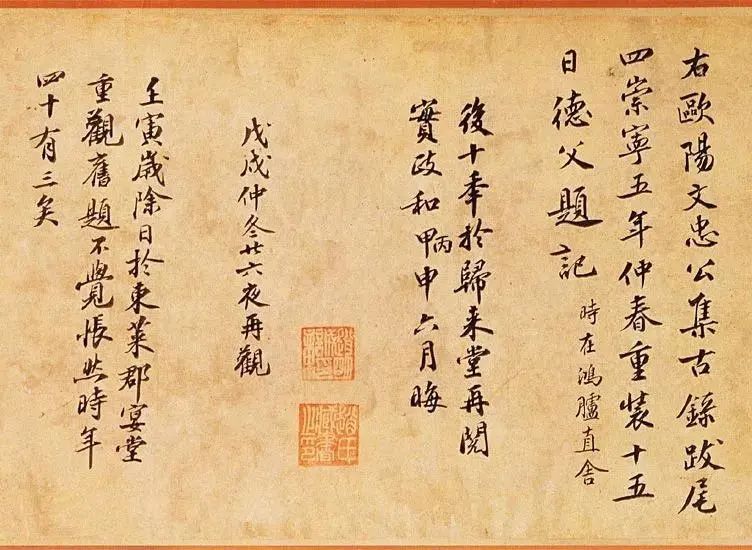 右歐陽文忠公集古錄跋尾
四崇寧五年仲春重裝十五
日德父題記 時在鴻臚直舍
後十年於歸来堂再閱
實政和甲丙申六月晦
戊戌仲冬廿六夜再觀
壬寅歲除日於東萊郡宴堂
重觀舊題不覺悵然時年
四十有三矣